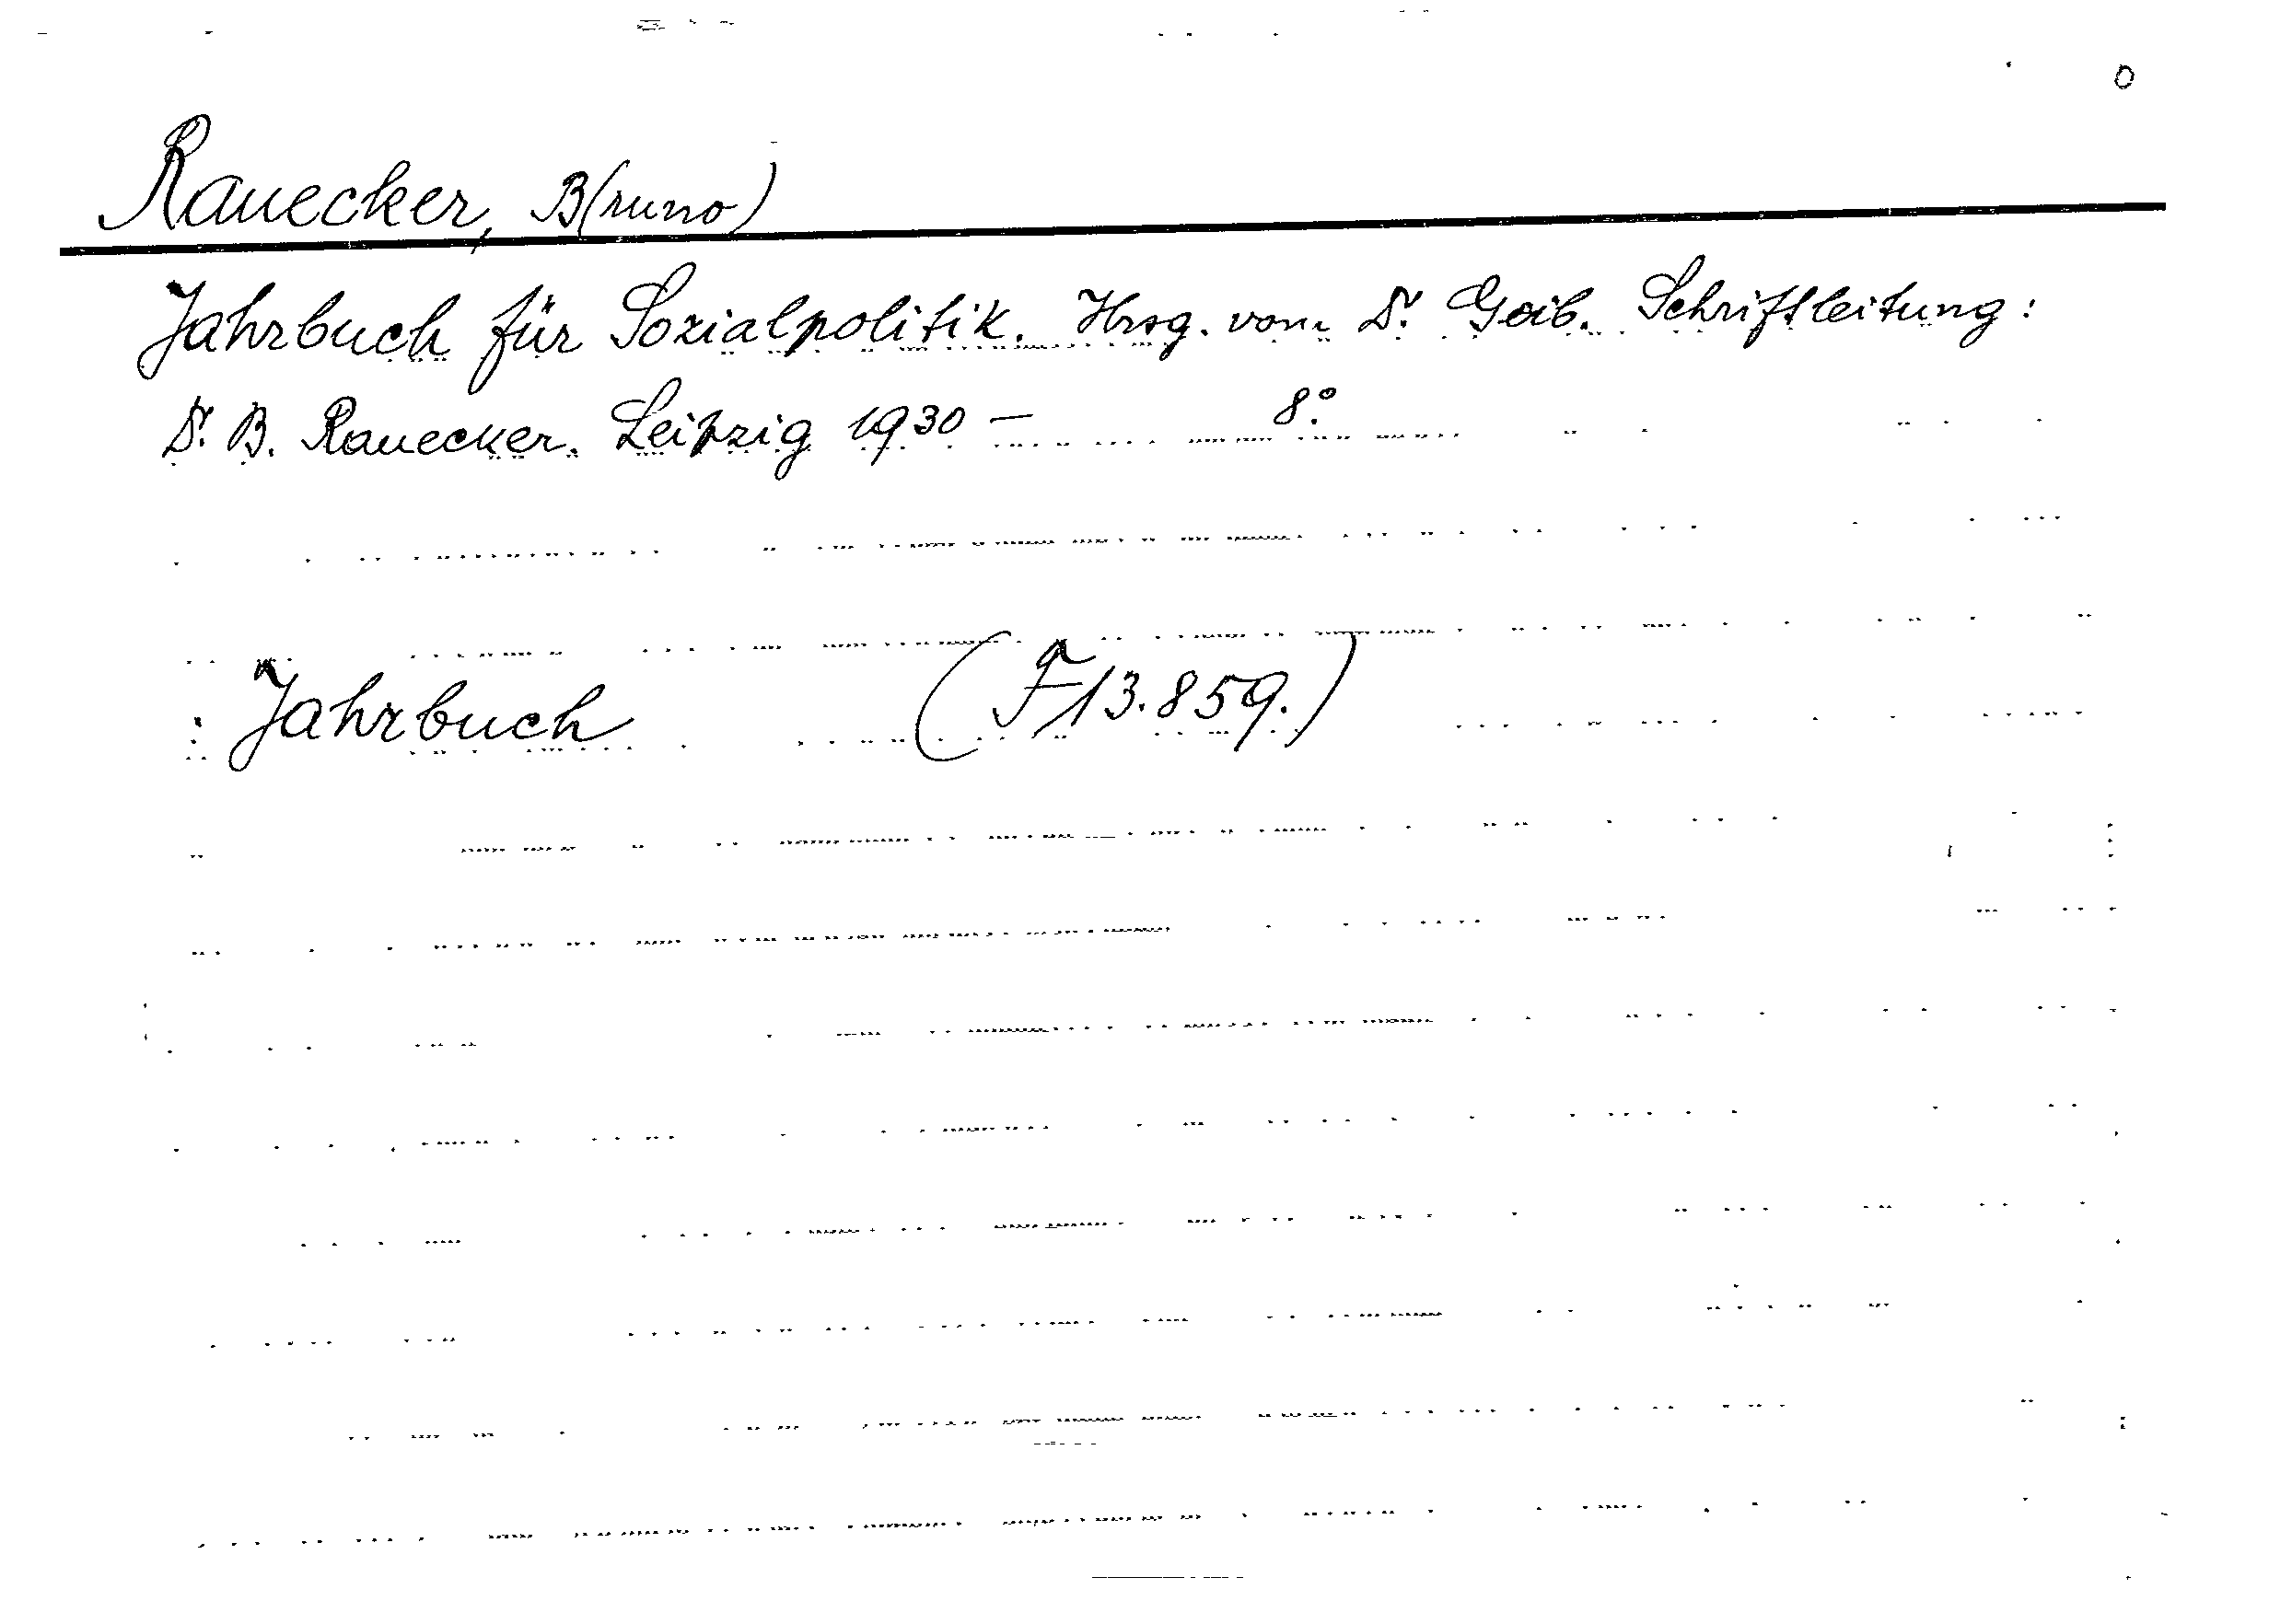 Rauecker, B(runo)
Jahrbuch für Sozialpolitik. Hrsg. von Dr. Geib. Schriftleitung:
Dr. B. Rauecker. Leipzig 1930 — 8°.
: Jahrbuch (F 13.859.)